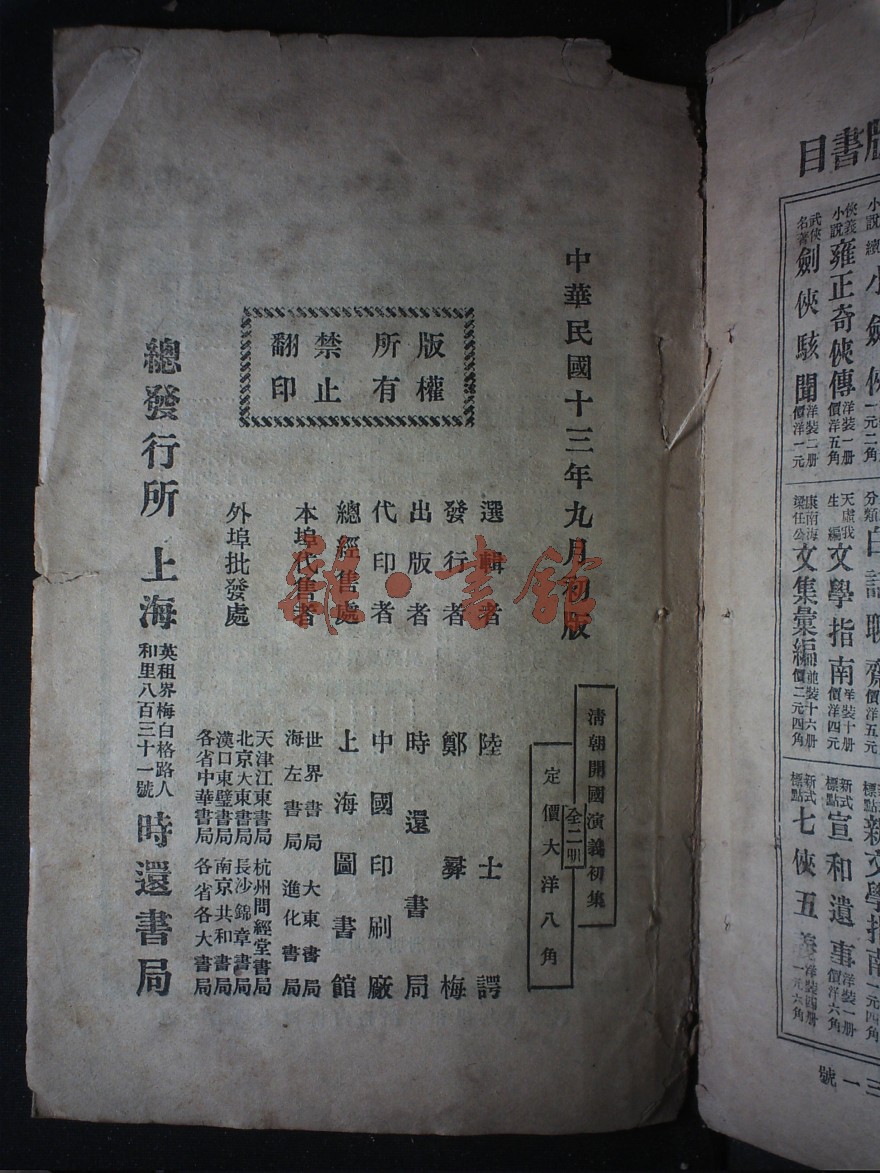 版書目
小說
續小劍俠
一元二角
俠義小說
雍正奇俠傳
洋裝一册
價洋五角
武俠名著
劍俠駭聞
洋裝二册
價洋一元
分類
白話聊齋
價洋五元
天虛我生編
文學指南
洋裝十册
價洋四元
康南海
梁任公
文集彙編
並裝十六册
價二元四角
標點
新文學指南
一元四角
新式標點
宣和遺事
洋裝一册
價洋六角
新式標點
七俠五義
洋裝四册
一元六角
三一號
中華民國十三年九月初版
清朝開國演義初集
全二册
定價大洋八角
版權所有
翻印禁止
選輯者 陸士諤
發行者 鄭彝梅
出版者 時還書局
代印者 中國印刷廠
總經售處 上海圖書館
本埠代售者
世界書局 大東書局
海左書局 進化書局
外埠批發處
天津江東書局 杭州問經堂書局
北京大東書局 長沙錦章書局
漢口東璧書局 南京共和書局
各省中華書局 各省各大書局
總發行所 上海 英租界梅白格路人和里八百三十一號 時還書局
雜·書館